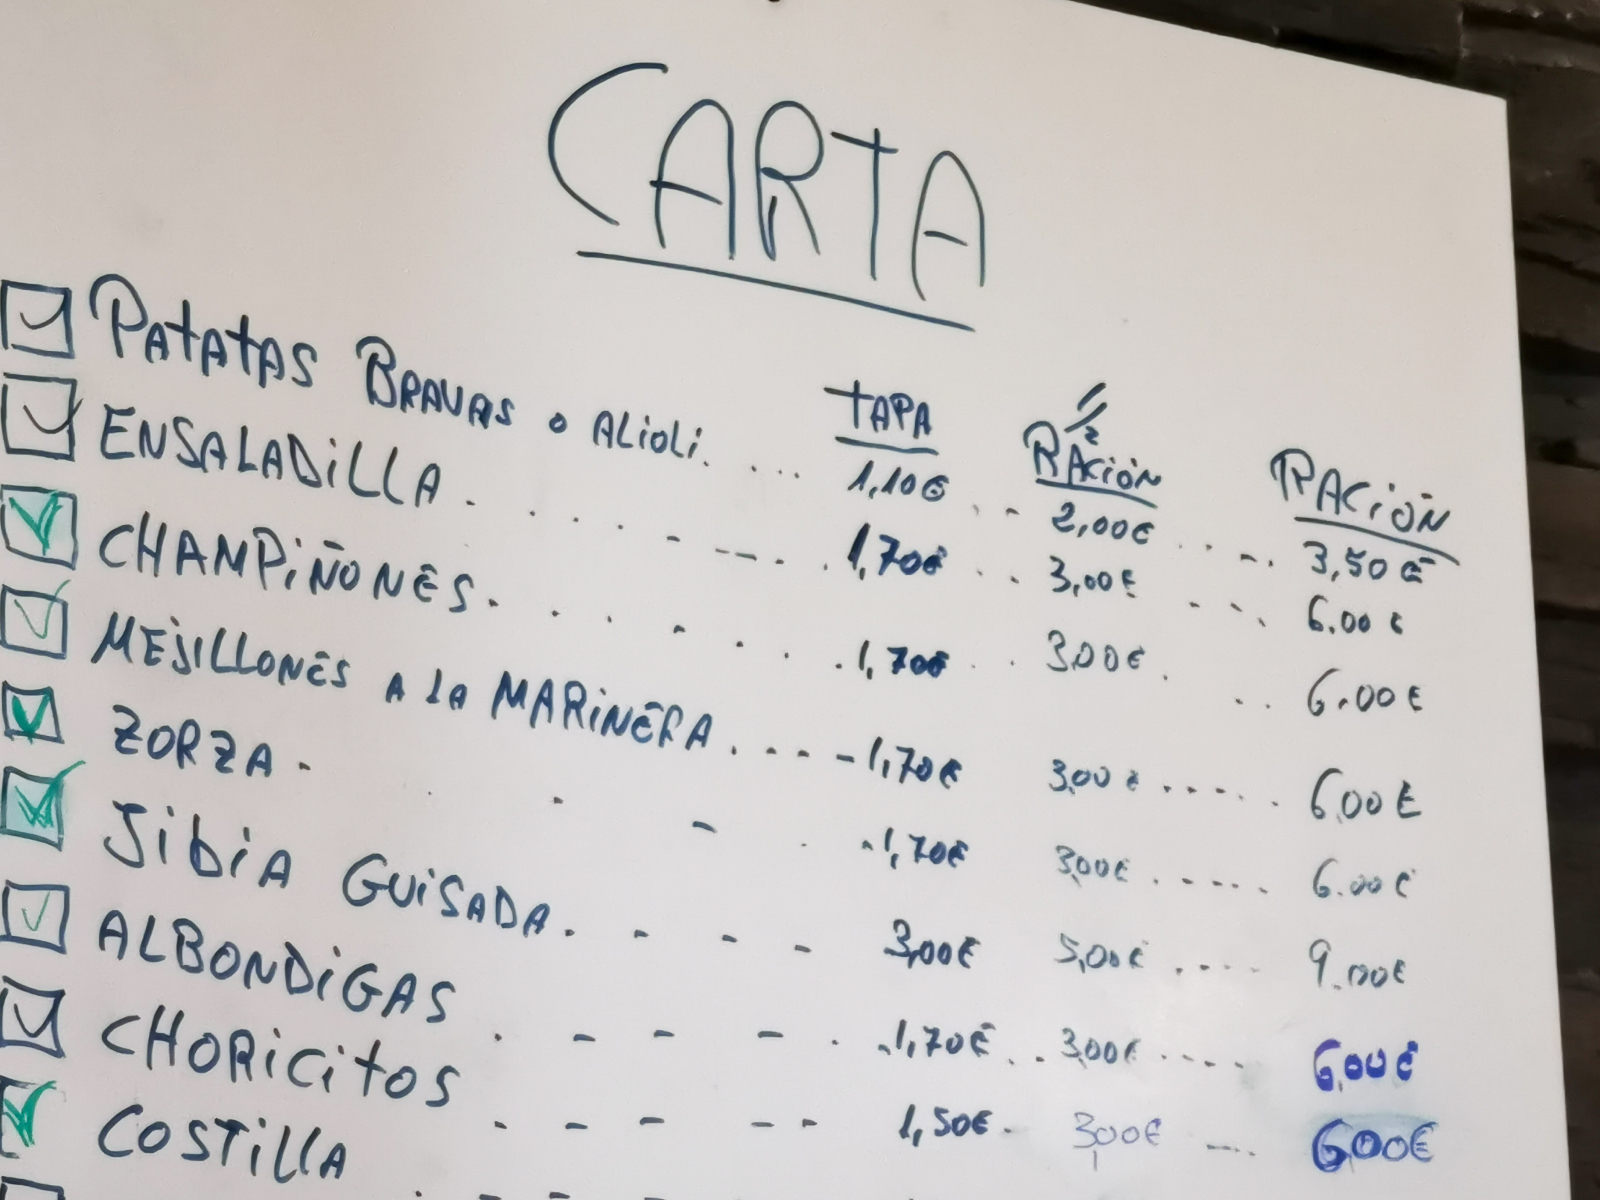 CARTA
TAPA 1/2 RACIÓN RACIÓN
PATATAS BRAVAS o ALIOLI..... 1,10€ ... 2,00€ ..... 3,50€
ENSALADILLA ......... 1,70€ .. 3,00€ .... 6.00€
CHAMPIÑONES ........ 1,70€ .. 3,00€ ... 6,00€
MEJILLONES A LA MARINERA .....1,70€ 3,00€ ...... 6,00€
ZORZA ..... 1,70€ 3,00€ ...... 6.00€
JIBIA GUISADA .---- 3,00€ 5,00€ ..... 9.00€
ALBONDIGAS .---. 1,70€ .. 3,00€ ..... 6,00€
CHORICITOS ----- 1,50€ - 3,00€ .... 6,00€
COSTILLA